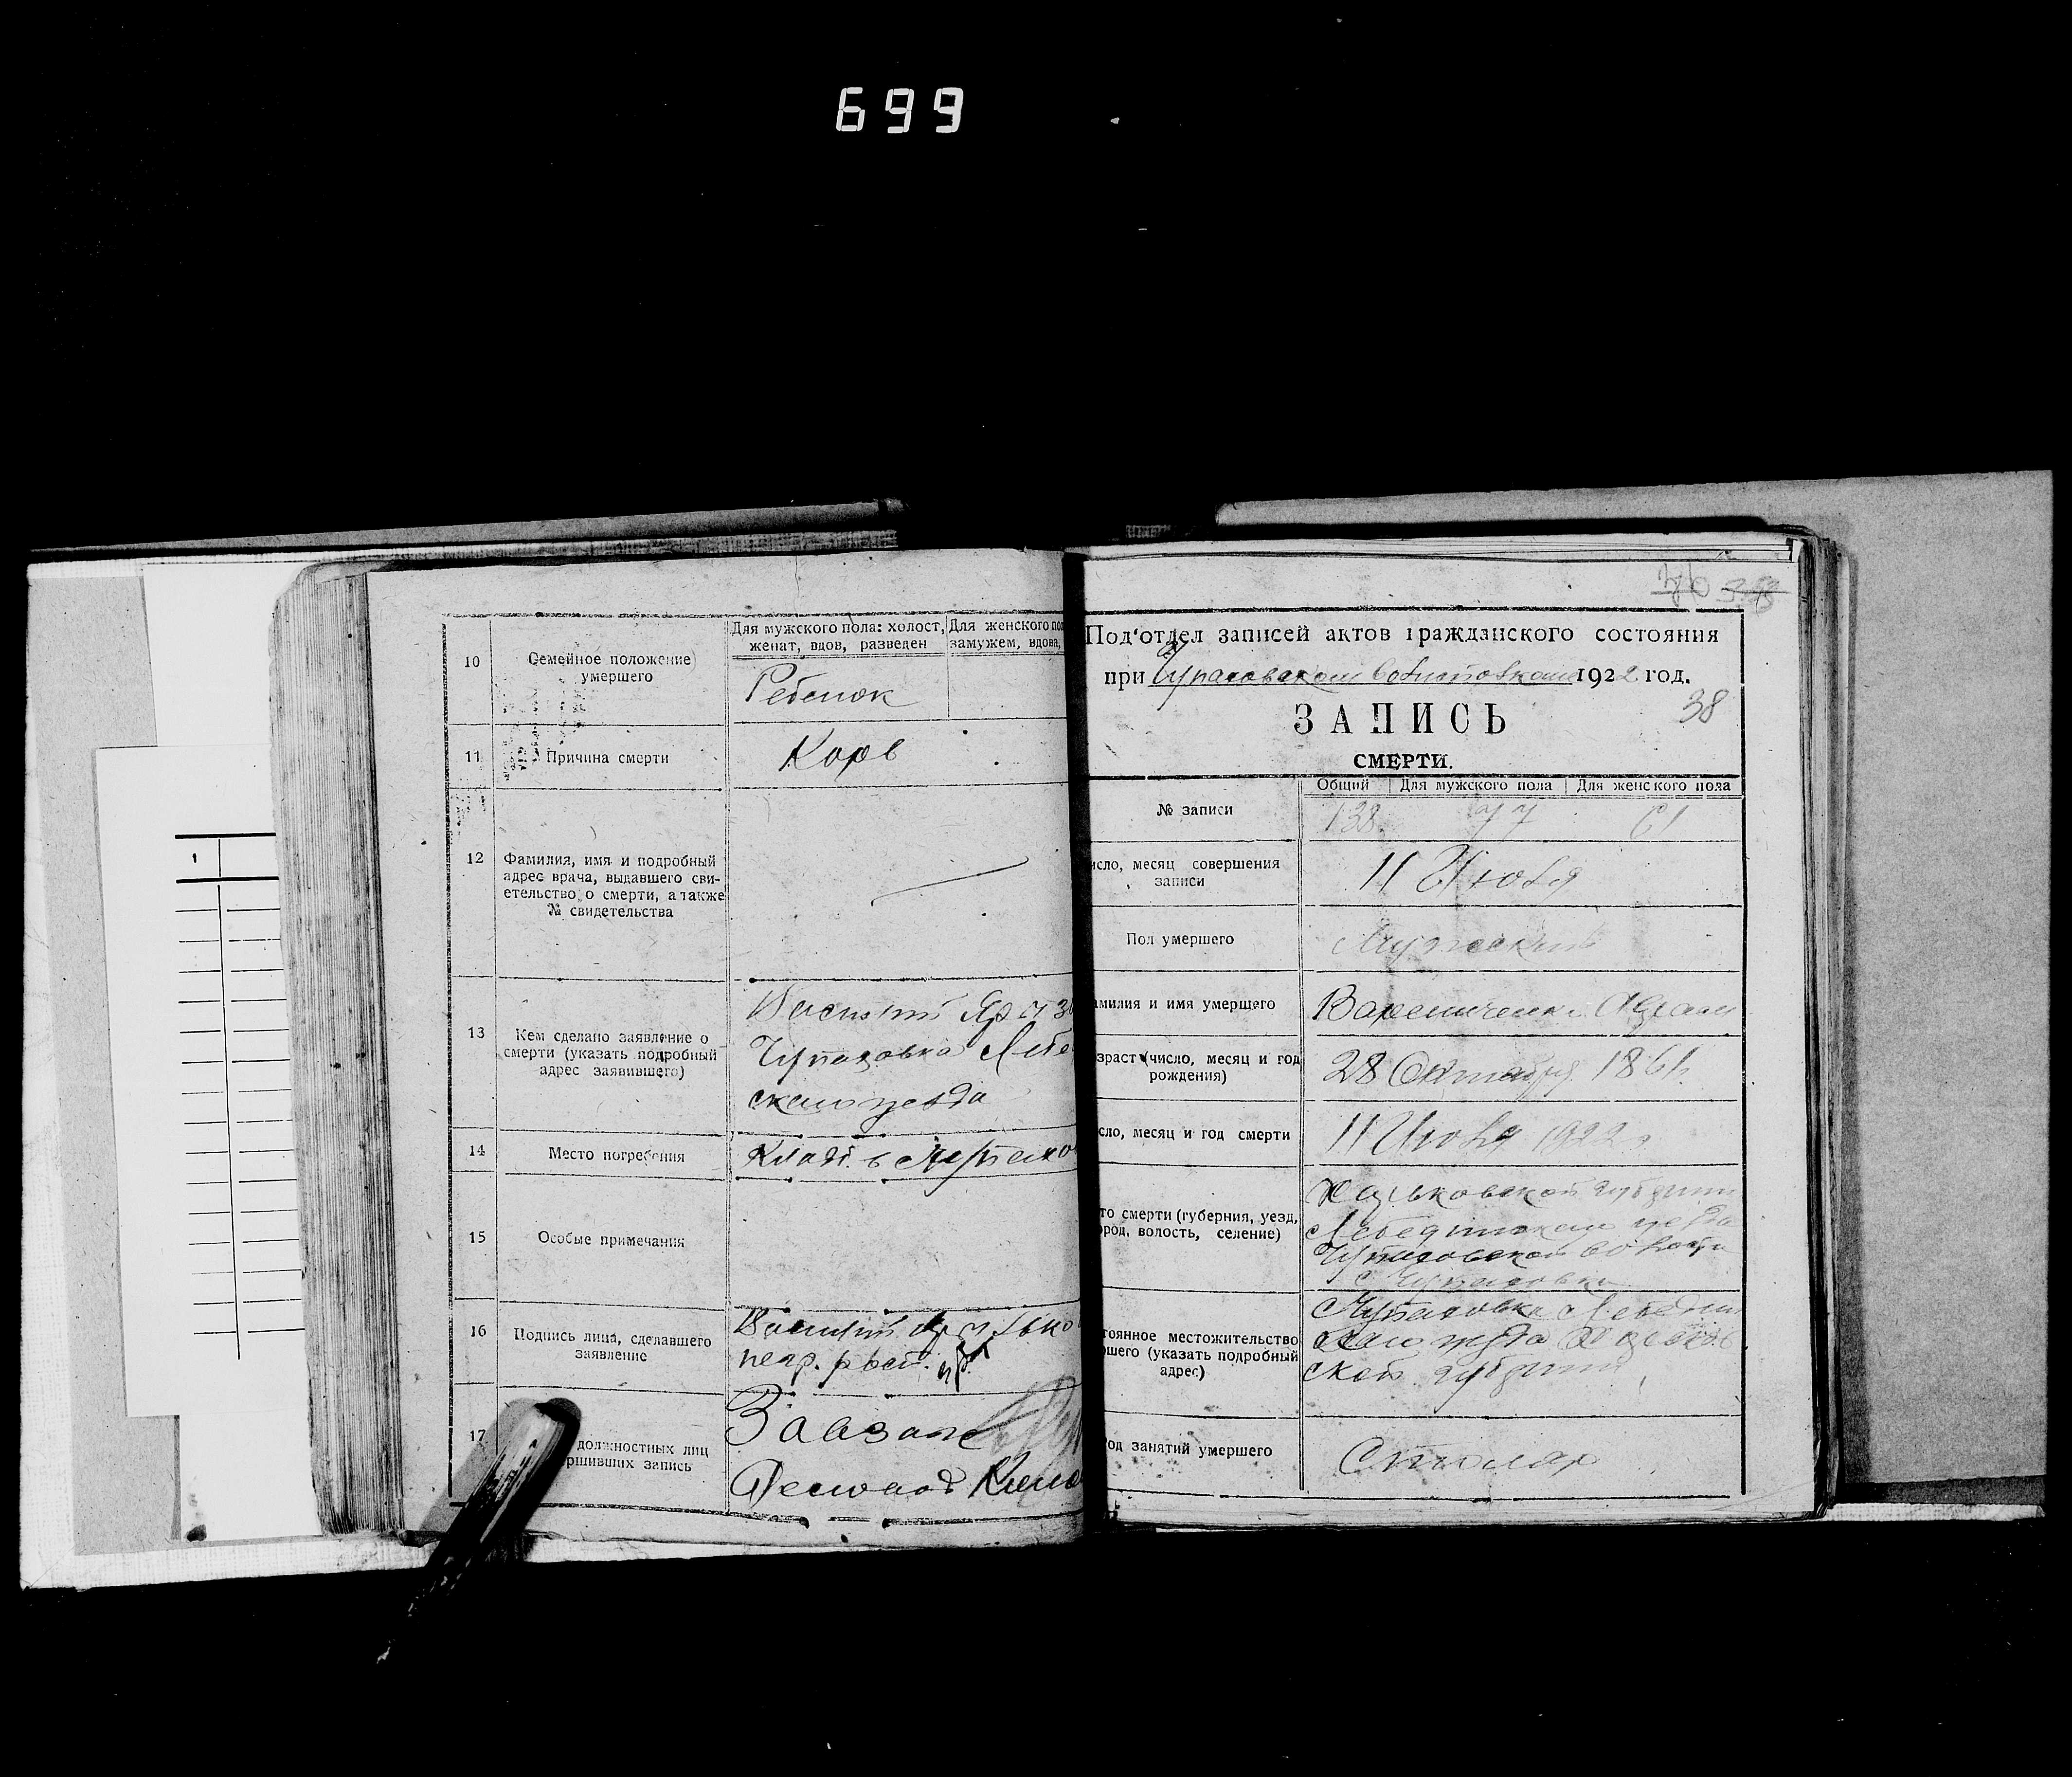 699
Для мужского пола: холост,
женат, вдов, разведен
Для женского пол
замужем, вдова,
10
Семейное положение
умершего
Ребенок
11
Причина смерти
Корь
12
Фамилия, имя и подробный
адрес врача, выдавшего сви-
етельство о смерти, а также
№ свидетельства
13
Кем сделано заявление о
смерти (указать подробный
адрес заявившего)
Василий
Чупаховка Лебе
ского уезда
14
Место погребения
Кладб. в Чупахо
15
Особые примечания
16
Подпись лица, сделавшего
заявление
Василий
негр.
17
должностных лиц
ршивших запись
Завзаг
Делопр
1
38
Под'отдел записей актов гражданского состояния
при Чупаховском Волисполкоме 1922 год.
38
ЗАПИСЬ
СМЕРТИ.
Общий
Для мужского пола
Для женского пола
№ записи
138
77
61
исло, месяц совершения
записи
11 Июля
Пол умершего
Мужский
амилия и имя умершего
Варениченко
зраст (число, месяц и год
рождения)
28 Октября 1861
сло, месяц и год смерти
11 Июля 1922 г
то смерти (губерния, уезд,
ород, волость, селение)
Харьковской губернии
Лебединского уезда
Чупаховской волости
с Чупаховка
тоянное местожительство
ршего (указать подробный
адрес)
Чупаховка Лебедин
ского уезда Харьков
ской губернии
од занятий умершего
Столяр